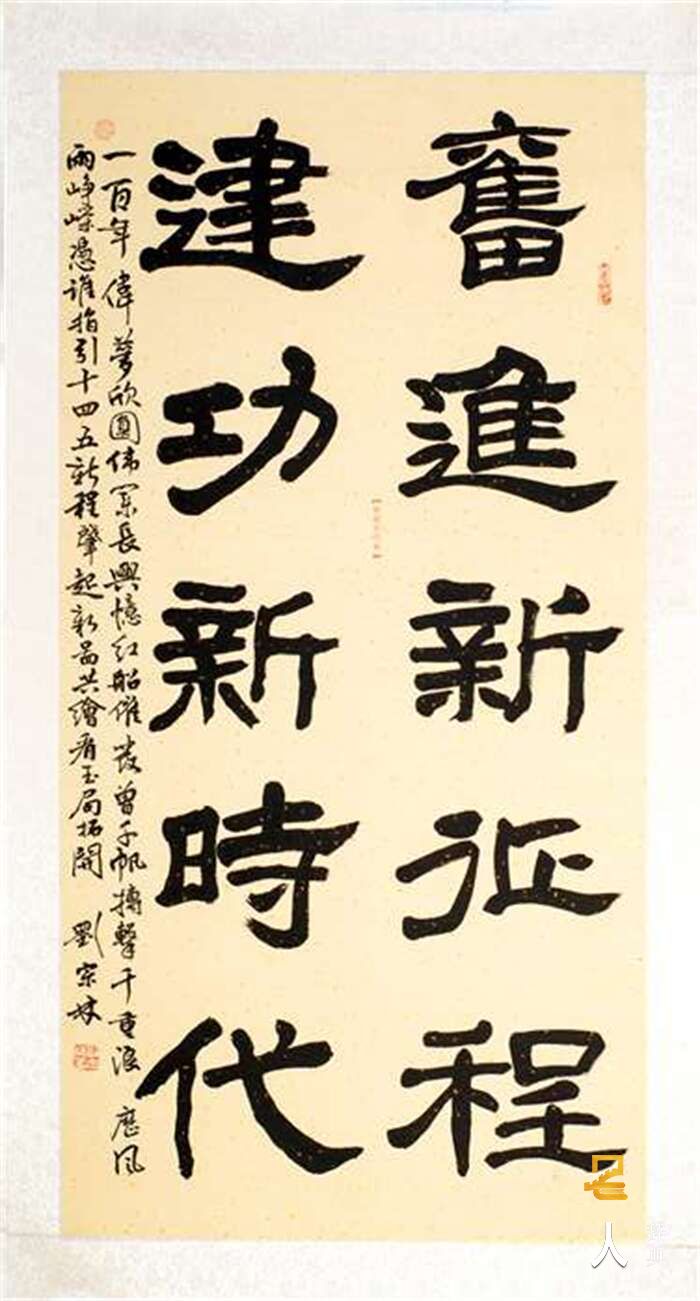 奮進新征程
建功新時代
一百年偉夢欣圓伟業長興憶紅船催發曾千帆搏擊千重浪歷風
雨崢嶸憑誰指引十四五新程肇起新圖共繪看玉局拓開 劉宗
人